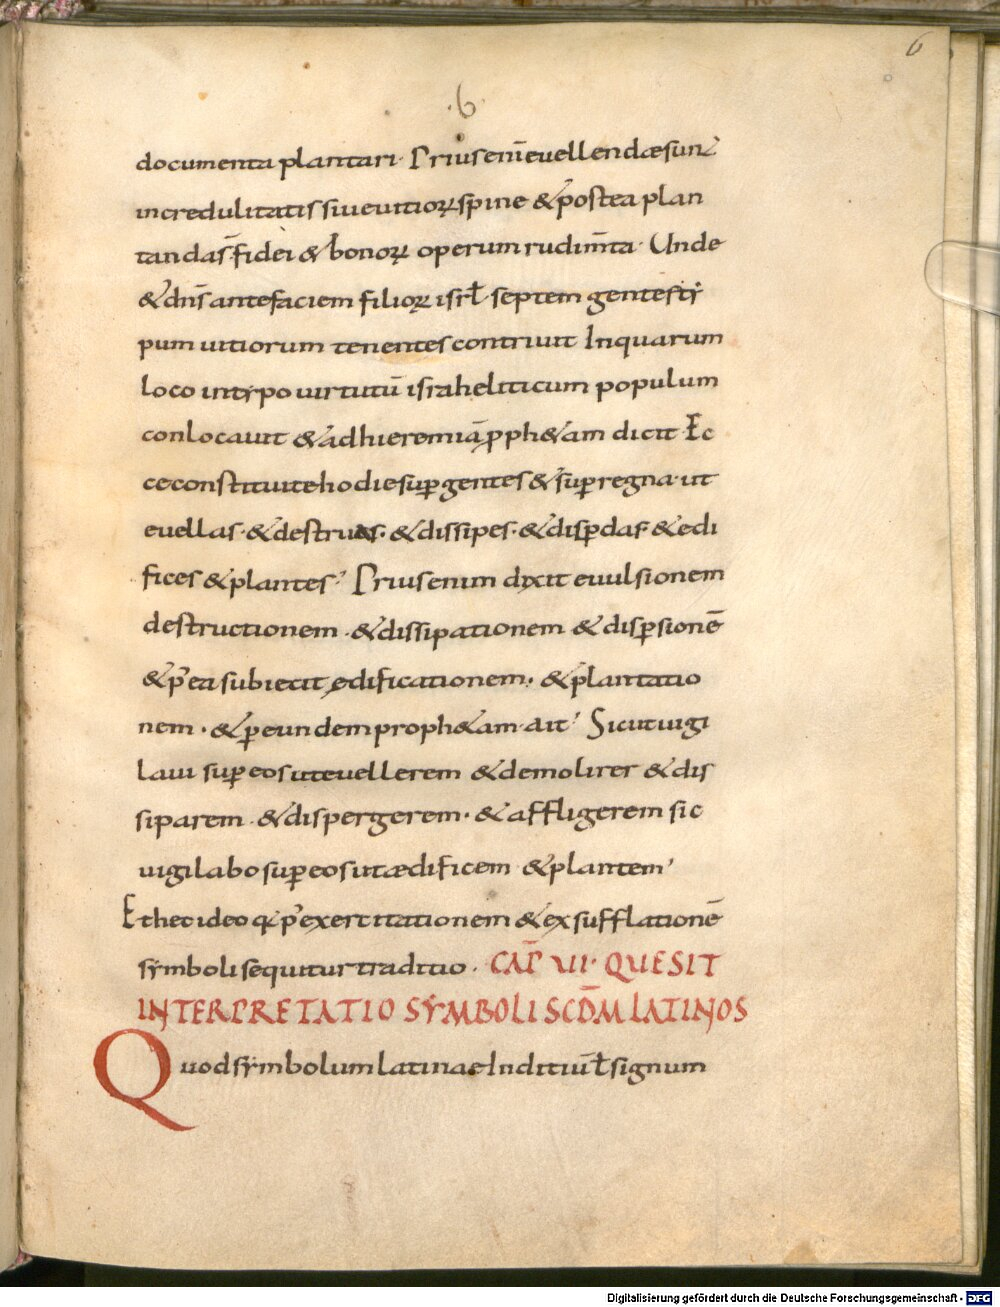 6
·6·
documenta plantari· Prius enī euellendæ sunt
incredulitatis siue uitioꝝ spine & postea plan
tanda s̄ fidei & bonoꝝ operum rudim̄ta· Unde
& dn̄s ante faciem filioꝝ isrł septem gentes ty
pum uitiorum tenentes contriuit In quarum
loco in typo uirtutū israheliticum populum
conlocauit & ad hieremiā ꝓph&am dicit Ec
ce constitui te hodie suꝑ gentes & suꝑ regna· ut
euellas· & destruas· & dissipes· & disꝑdas & edi
fices & plantes· Prius enim dixit euulsionem
destructionem· & dissipationem & disꝑsionē
& p̄ ea subiecit edificationem· & plantatio
nem· & ꝑ eundem proph&am· ait· Sicut uigi
laui suꝑ eos ut euellerem & demolirer & dis
siparem & dispergerem· & affligerem sic
uigilabo suꝑ eos ut ædificem & plantem
Et hec ideo q̄ p̄ exercitationem & exsufflationē
symboli sequitur traditio· CAP̄ VI· QUE SIT
INTERPRETATIO SYMBOLI SCD̄M LATINOS
Quod symbolum latinae Inditiū ł signum
Digitalisierung gefördert durch die Deutsche Forschungsgemeinschaft - DFG